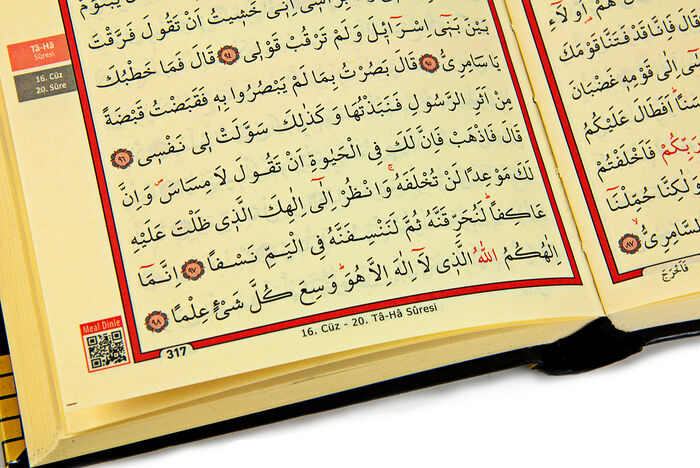 هُمْ اُو۬لَٓاءِ
قَالَ فَاِنَّا قَدْ فَتَنَّا قَوْمَكَ
اِلٰى قَوْمِهٖ غَضْبَانَ
اَفَطَالَ عَلَيْكُمُ
رَبِّكُمْ فَاَخْلَفْتُمْ
وَلٰكِنَّا حُمِّلْنَٓا
السَّامِرِىُّۙ ﴿٨٧﴾
فَاَخْرَجَ
اِنّٖى خَشٖيتُ اَنْ تَقُولَ فَرَّقْتَ
بَيْنَ بَنٖٓى اِسْرَٓائٖلَ وَلَمْ تَرْقُبْ قَوْلٖى ﴿٩٤﴾ قَالَ فَمَا خَطْبُكَ
يَا سَامِرِىُّ ﴿٩٥﴾ قَالَ بَصُرْتُ بِمَا لَمْ يَبْصُرُوا بِهٖ فَقَبَضْتُ قَبْضَةً
مِنْ اَثَرِ الرَّسُولِ فَنَبَذْتُهَا وَكَذٰلِكَ سَوَّلَتْ لٖى نَفْسٖى ﴿٩٦﴾
قَالَ فَاذْهَبْ فَاِنَّ لَكَ فِى الْحَيٰوةِ اَنْ تَقُولَ لَا مِسَاسَۖ وَاِنَّ
لَكَ مَوْعِدًا لَنْ تُخْلَفَهُۚ وَانْظُرْ اِلٰٓى اِلٰهِكَ الَّذٖى ظَلْتَ عَلَيْهِ
عَاكِفًاۜ لَنُحَرِّقَنَّهُ ثُمَّ لَنَنْسِفَنَّهُ فِى الْيَمِّ نَسْفًا ﴿٩٧﴾ اِنَّمَٓا
اِلٰهُكُمُ اللّٰهُ الَّذٖى لَٓا اِلٰهَ اِلَّا هُوَۜ وَسِعَ كُلَّ شَىْءٍ عِلْمًا ﴿٩٨﴾
Tâ-Hâ
Sûresi
16. Cüz
20. Sûre
Meal Dinle
317
16. Cüz - 20. Tâ-Hâ Sûresi